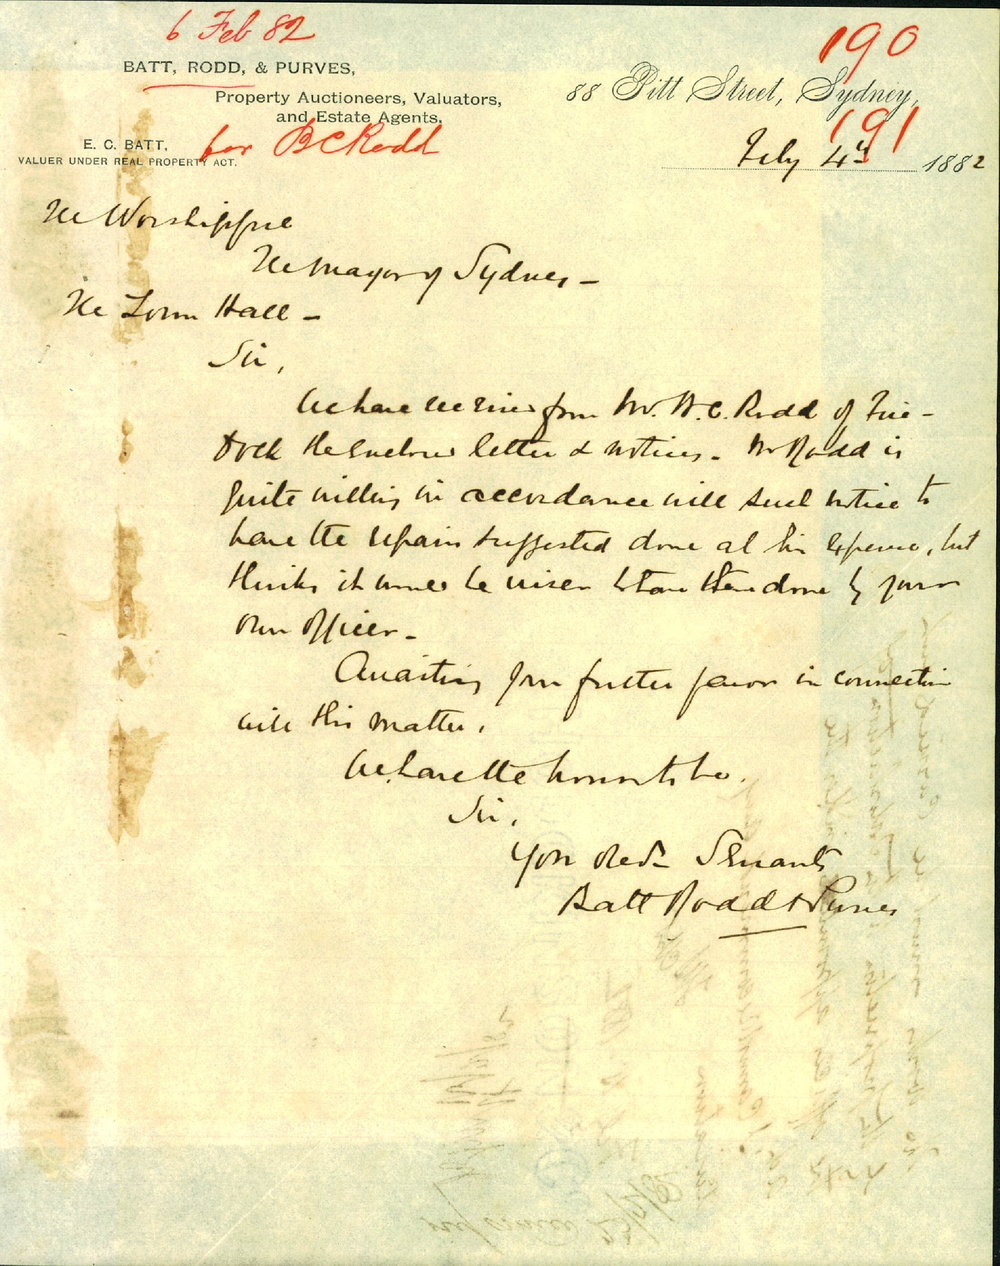 6 Feb 82
190
BATT, RODD, & PURVES,
88 Pitt Street, Sydney,
Property Auctioneers, Valuators,
and Estate Agents.
191
E. C. BATT,
VALUER UNDER REAL PROPERTY ACT.
for B C Rodd
Feby 4th 1882
The Worshipful
The Mayor of Sydney -
The Town Hall -
Sir,
We have received from Mr. B. C. Rodd of Five-
Dock the enclosed letter & notices. Mr Rodd is
quite willing in accordance with such notice to
have the repairs suggested done at his expense, but
thinks it would be wiser to have them done by your
own officer -
Awaiting your further favor in connection
with this matter.
We have the honor to be.
Sir,
Your Obedt Servants
Batt Rodd & Purves